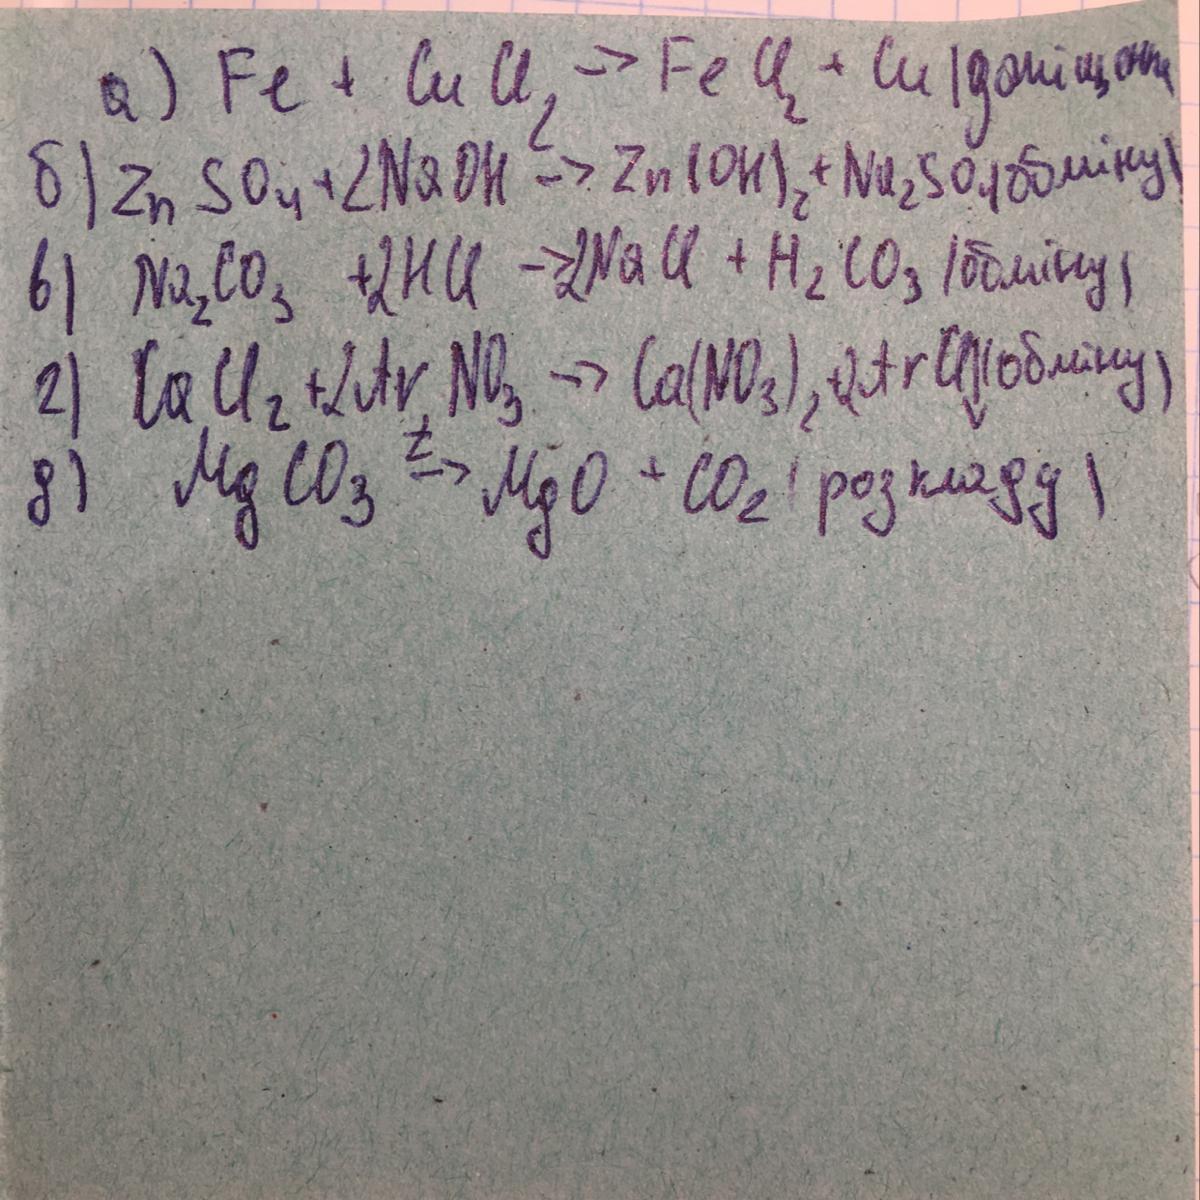 а) Fe + CuCl₂ → FeCl₂ + Cu (заміщення
б) ZnSO₄ + 2NaOH → Zn(OH)₂ + Na₂SO₄ (обміну)
в) Na₂CO₃ + 2HCl → 2NaCl + H₂CO₃ (обміну)
г) CaCl₂ + 2ArNO₃ → Ca(NO₃)₂ + 2ArCl↓ (обміну)
д) MgCO₃ t→ MgO + CO₂ (розкладу)